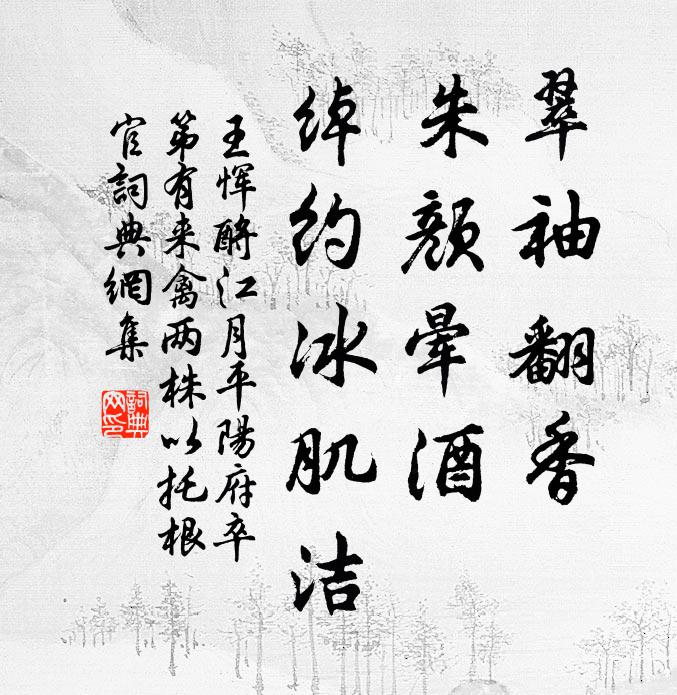 翠袖翻香
朱颜晕酒
绰约冰肌洁
王恽酹江月平陽府卒
第有来禽两株以托根
官詞典網集
詞典
网印